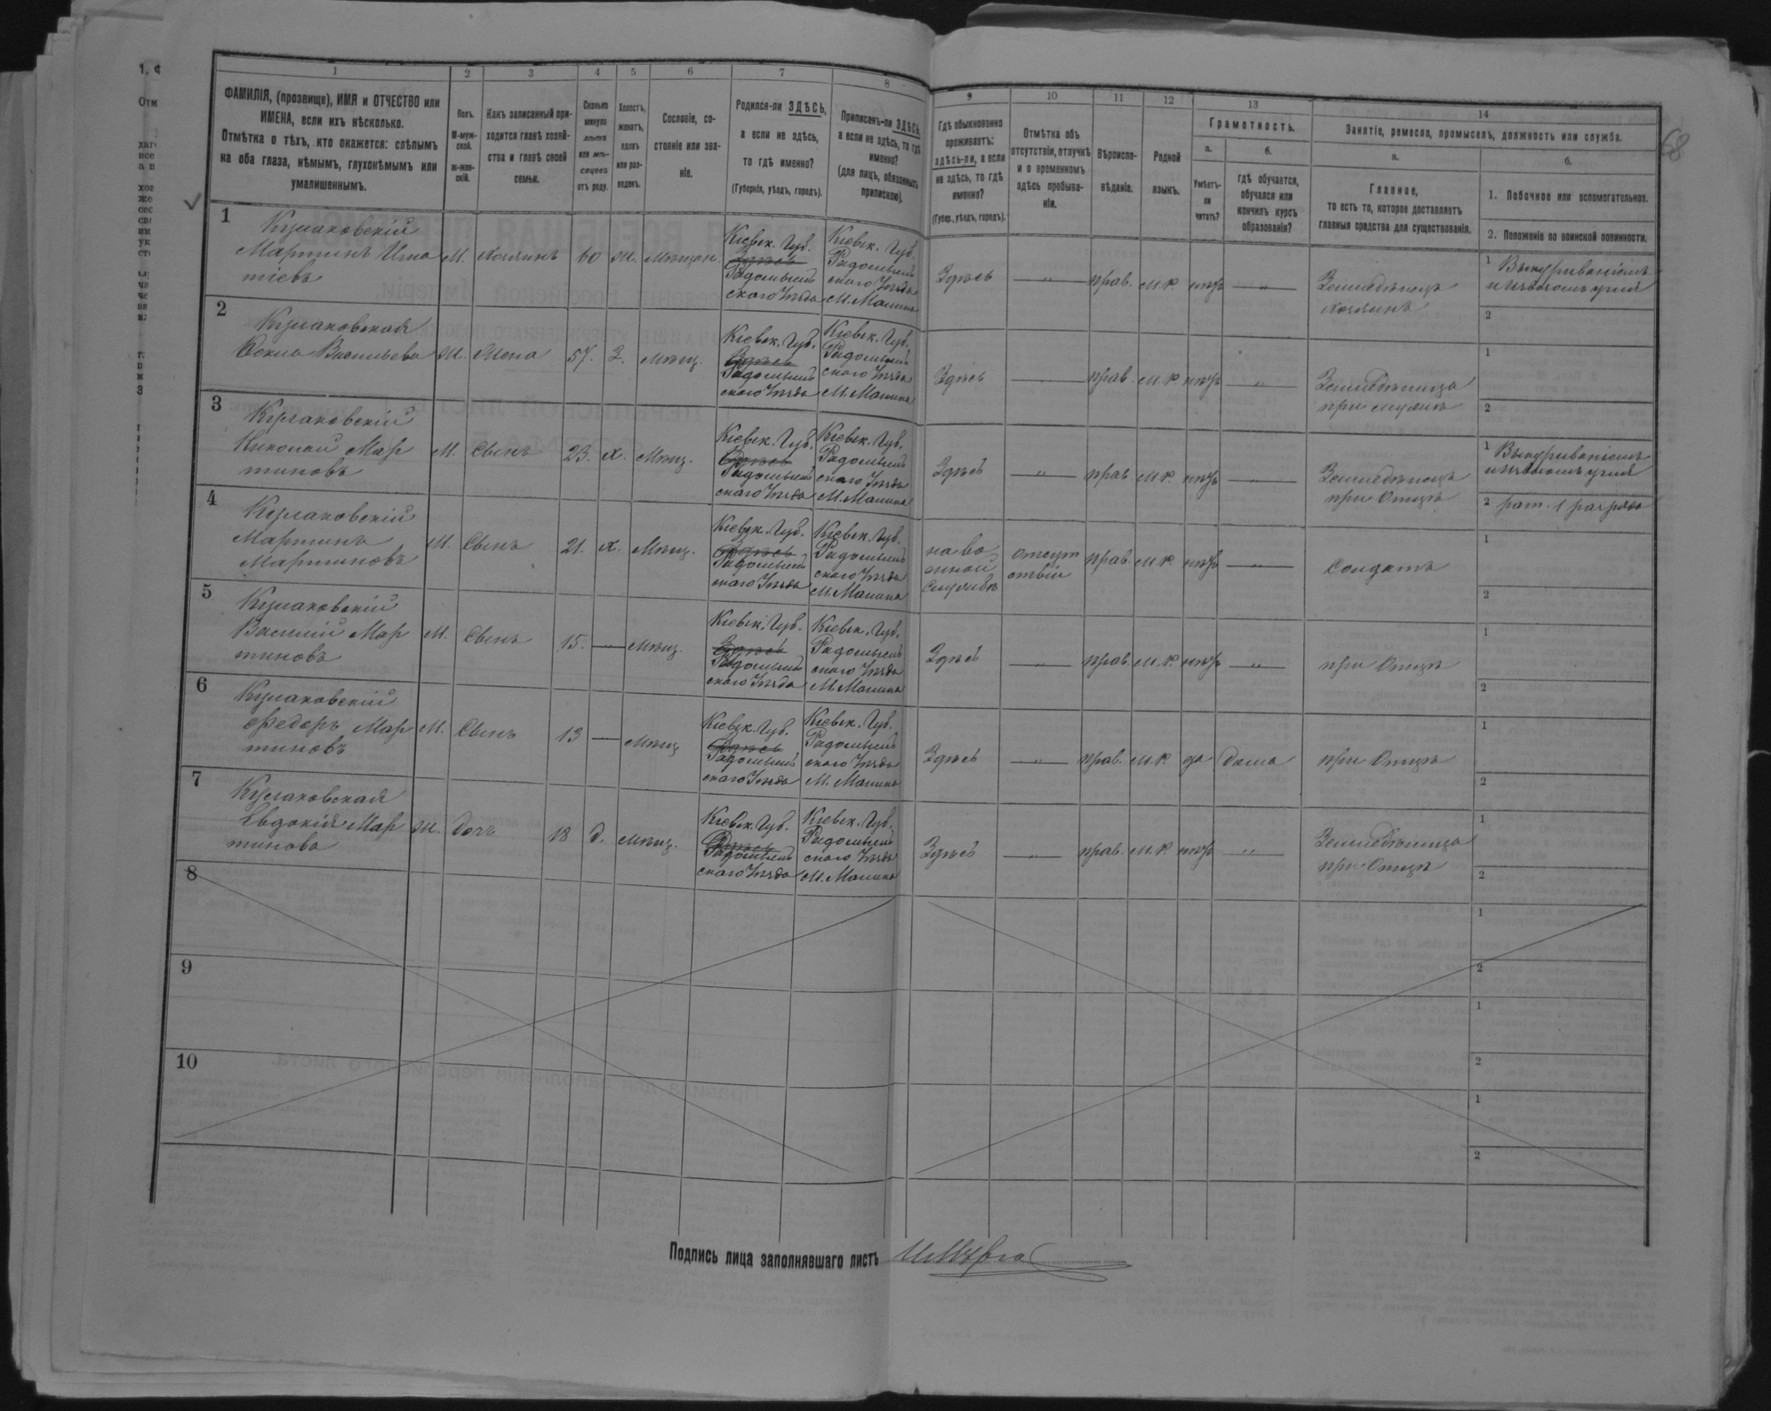 1
2
3
4
5
6
7
8
9
10
11
12
13
14
68
ФАМИЛІЯ, (прозвище), ИМЯ и ОТЧЕСТВО или
ИМЕНА, если ихъ нѣсколько.
Отмѣтка о тѣхъ, кто окажется: слѣпымъ
на оба глаза, нѣмымъ, глухонѣмымъ или
умалишеннымъ.
Полъ.
М-муж-
ской.
ж-жен-
скій.
Какъ записанный при-
ходится главѣ хозяй-
ства и главѣ своей
семьи.
Сколько
минуло
лѣтъ
или мѣ-
сяцевъ
отъ роду.
Холостъ,
женатъ,
вдовъ
или раз-
веденъ.
Сословіе, со-
стояніе или зва-
ніе.
Родился-ли ЗДѢСЬ,
а если не здѣсь,
то гдѣ именно?
(Губернія, уѣздъ, городъ).
Приписанъ-ли ЗДѢСЬ,
а если не здѣсь, то гдѣ
именно?
(для лицъ, обязанныхъ
припиской).
Гдѣ обыкновенно
проживаетъ:
здѣсь-ли, а если
не здѣсь, то гдѣ
именно?
(Губер., уѣздъ, городъ).
Отмѣтка объ
отсутствіи, отлучкѣ
и о временномъ
здѣсь пребыва-
ніи.
Вѣроиспо-
вѣданіе.
Родной
языкъ.
Грамотность.
а.
Умѣетъ-
ли
читать?
б.
Гдѣ обучается,
обучался или
кончилъ курсъ
образованія?
Занятіе, ремесло, промыселъ, должность или служба.
а.
Главное,
то есть то, которое доставляетъ
главныя средства для существованія.
б.
1. Побочное или вспомогательное.
2. Положеніе по воинской повинности.
1
Кулаковскій
Мартинъ Игна
тіевъ
М. Хозяинъ 60 ж. Мѣщан.
Кіевск. Губ.
Здѣсь
Радомысль
скаго Уѣзда
Кіевск. Губ.
Радомысль
скаго Уѣзда
М. Малина
Здѣсь — прав. м.р. нѣтъ —
Земледѣлецъ
хозяинъ
1
2
2
Кулаковская
Фекла Васильева
Ж. Жена 57. З. мѣщ.
Кіевск. Губ.
Здѣсь
Радомысль
скаго Уѣзда
Кіевск. Губ.
Радомысль
скаго Уѣзда
М. Малина
Здѣсь — прав. м.р. нѣтъ —
Земледѣлица
при мужѣ
1
2
3
Кулаковскій
Николай Мар
тиновъ
М. Сынъ 23. х. Мѣщ.
Кіевск. Губ.
Здѣсь
Радомысль
скаго Уѣзда
Кіевск. Губ.
Радомысль
скаго Уѣзда
М. Малина
Здѣсь — прав. м.р. нѣтъ —
Земледѣлецъ
при Отцѣ
1
2 рат. 1 разряда
4
Кулаковскій
Мартинъ
Мартиновъ
М. Сынъ 21. х. Мѣщ.
Кіевск. Губ.
Здѣсь
Радомысль
скаго Уѣзда
Кіевск. Губ.
Радомысль
скаго Уѣзда
М. Малина
на во
енной
службѣ
отсут
ствіи
прав. м.р. нѣтъ —
Солдатъ
1
2
5
Кулаковскій
Василій Мар
тиновъ
М. Сынъ 15. — мѣщ.
Кіевск. Губ.
Здѣсь
Радомысль
скаго Уѣзда
Кіевск. Губ.
Радомысль
скаго Уѣзда
М. Малина
Здѣсь — прав. м.р. нѣтъ —
при Отцѣ
1
2
6
Кулаковскій
Федоръ Мар
тиновъ
М. Сынъ 13 — мѣщ
Кіевск. Губ.
Здѣсь
Радомысль
скаго Уѣзда
Кіевск. Губ.
Радомысль
скаго Уѣзда
М. Малина
Здѣсь — прав. м.р. да Дома
при Отцѣ
1
2
7
Кулаковская
Евдокія Мар
тинова
Ж. Дочь 18 д. мѣщ.
Кіевск. Губ.
Здѣсь
Радомысль
скаго Уѣзда
Кіевск. Губ.
Радомысль
скаго Уѣзда
М. Малина
Здѣсь — прав. м.р. нѣтъ —
Земледѣлица
при Отцѣ
1
2
8
1
2
9
1
2
10
1
2
Подпись лица заполнявшаго листъ